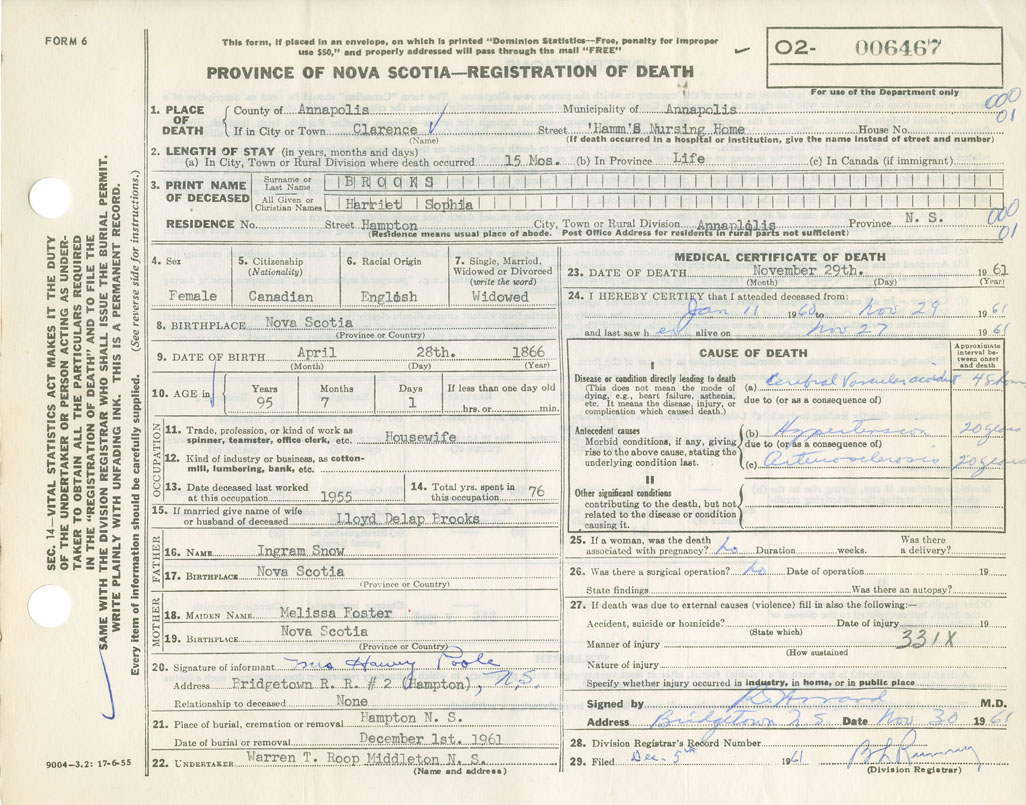 FORM 6
This form, if placed in an envelope, on which is printed "Dominion Statistics—Free, penalty for improper
use $50," and properly addressed will pass through the mail "FREE"
PROVINCE OF NOVA SCOTIA—REGISTRATION OF DEATH
02- 006467
For use of the Department only
000
01
1. PLACE OF DEATH
County of Annapolis Municipality of Annapolis
If in City or Town Clarence Street 'Hamm's Nursing Home House No.
(Name) (If death occurred in a hospital or institution, give the name instead of street and number)
2. LENGTH OF STAY (in years, months and days)
(a) In City, Town or Rural Division where death occurred 15 Mos. (b) In Province Life (c) In Canada (if immigrant)
3. PRINT NAME OF DECEASED
Surname or Last Name BROOKS
All Given or Christian Names Harriet Sophia
RESIDENCE No. Street Hampton City, Town or Rural Division Annaplolis Province N. S.
(Residence means usual place of abode. Post Office Address for residents in rural parts not sufficient)
000
01
4. Sex
Female
5. Citizenship
(Nationality)
Canadian
6. Racial Origin
English
7. Single, Married,
Widowed or Divorced
(write the word)
Widowed
8. BIRTHPLACE Nova Scotia
(Province or Country)
9. DATE OF BIRTH April 28th. 1866
(Month) (Day) (Year)
10. AGE in
Years Months Days If less than one day old
95 7 1 hrs. or min.
OCCUPATION
11. Trade, profession, or kind of work as
spinner, teamster, office clerk, etc. Housewife
12. Kind of industry or business, as cotton-
mill, lumbering, bank, etc.
13. Date deceased last worked
at this occupation 1955
14. Total yrs. spent in
this occupation 76
15. If married give name of wife
or husband of deceased Lloyd Delap Brooks
FATHER
16. NAME Ingram Snow
17. BIRTHPLACE Nova Scotia
(Province or Country)
MOTHER
18. MAIDEN NAME Melissa Foster
19. BIRTHPLACE Nova Scotia
(Province or Country)
20. Signature of informant Mrs Harvey Poole
Address Bridgetown R. R. # 2 (Hampton), N.S.
Relationship to deceased None
21. Place of burial, cremation or removal Hampton N. S.
Date of burial or removal December 1st. 1961
22. UNDERTAKER Warren T. Roop Middleton N. S.
(Name and address)
MEDICAL CERTIFICATE OF DEATH
23. DATE OF DEATH November 29th. 1961
(Month) (Day) (Year)
24. I HEREBY CERTIFY that I attended deceased from:
Jan 11 1960 to Nov 29 1961
and last saw her alive on Nov 27 1961
CAUSE OF DEATH
Approximate
interval be-
tween onset
and death
I
Disease or condition directly leading to death
(This does not mean the mode of
dying, e.g., heart failure, asthenia,
etc. It means the disease, injury, or
complication which caused death.)
(a) Cerebral Vascular accident 48 hours
due to (or as a consequence of)
Antecedent causes
Morbid conditions, if any, giving
rise to the above cause, stating the
underlying condition last.
(b) Hypertension 20 years
due to (or as a consequence of)
(c) Arteriosclerosis 20 years
II
Other significant conditions
contributing to the death, but not
related to the disease or condition
causing it.
25. If a woman, was the death
associated with pregnancy? no Duration weeks. Was there
a delivery?
26. Was there a surgical operation? no Date of operation 19
State findings Was there an autopsy?
27. If death was due to external causes (violence) fill in also the following:—
Accident, suicide or homicide? Date of injury 19
(State which)
Manner of injury 331X
(How sustained
Nature of injury
Specify whether injury occurred in industry, in home, or in public place
Signed by M.D.
Address Bridgetown N S Date Nov 30 1961
28. Division Registrar's Record Number
29. Filed Dec. 5th 1961
(Division Registrar)
SEC. 14—VITAL STATISTICS ACT MAKES IT THE DUTY
OF THE UNDERTAKER OR PERSON ACTING AS UNDER-
TAKER TO OBTAIN ALL THE PARTICULARS REQUIRED
IN THE "REGISTRATION OF DEATH" AND TO FILE THE
SAME WITH THE DIVISION REGISTRAR WHO SHALL ISSUE THE BURIAL PERMIT.
WRITE PLAINLY WITH UNFADING INK. THIS IS A PERMANENT RECORD.
Every item of information should be carefully supplied. (See reverse side for instructions.)
9004—3.2: 17-6-55